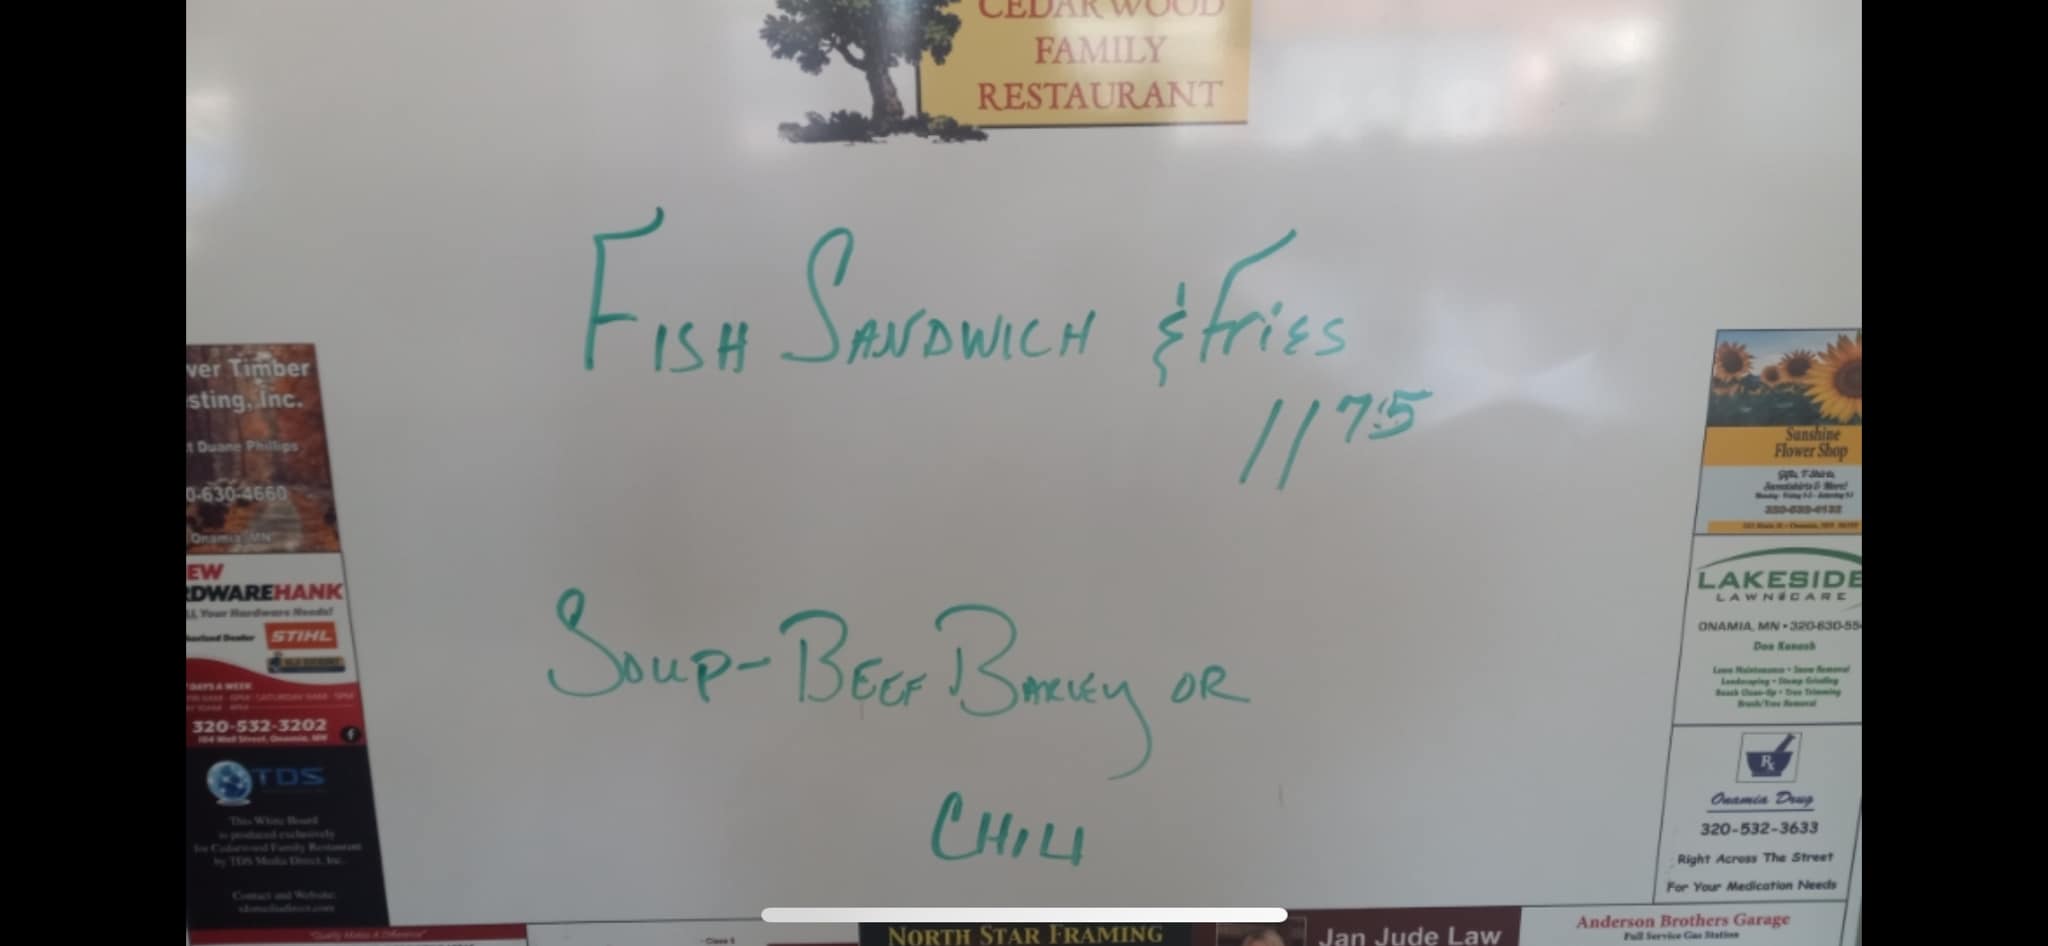 CEDARWOOD
FAMILY
RESTAURANT
FISH SANDWICH & Fries
11 75
SOUP - BEEF BARLEY OR
CHILI
ver Timber
sting, Inc.
Duane Phillips
0-630-4660
Onamia, MN
EW
RDWAREHANK
Your Hardware Needs!
Dealer
STIHL
DAYS A WEEK
320-532-3202
104 Wall Street, Onamia, MN
f
TDS
This White Board
is produced exclusively
for Cedarwood Family Restaurant
by TDS Media Direct, Inc.
Contact and Website:
tdsmediadirect.com
Sunshine
Flower Shop
LAKESIDE
LAWN CARE
ONAMIA, MN • 320-630-55
Lawn Maintenance • Snow Removal
Landscaping • Stump Grinding
Beach Clean-Up • Tree Trimming
Brush/Tree Removal
Rx
Onamia Drug
320-532-3633
Right Across The Street
For Your Medication Needs
"Quality Makes A Difference"
NORTH STAR FRAMING
Jan Jude Law
Anderson Brothers Garage
Full Service Gas Station